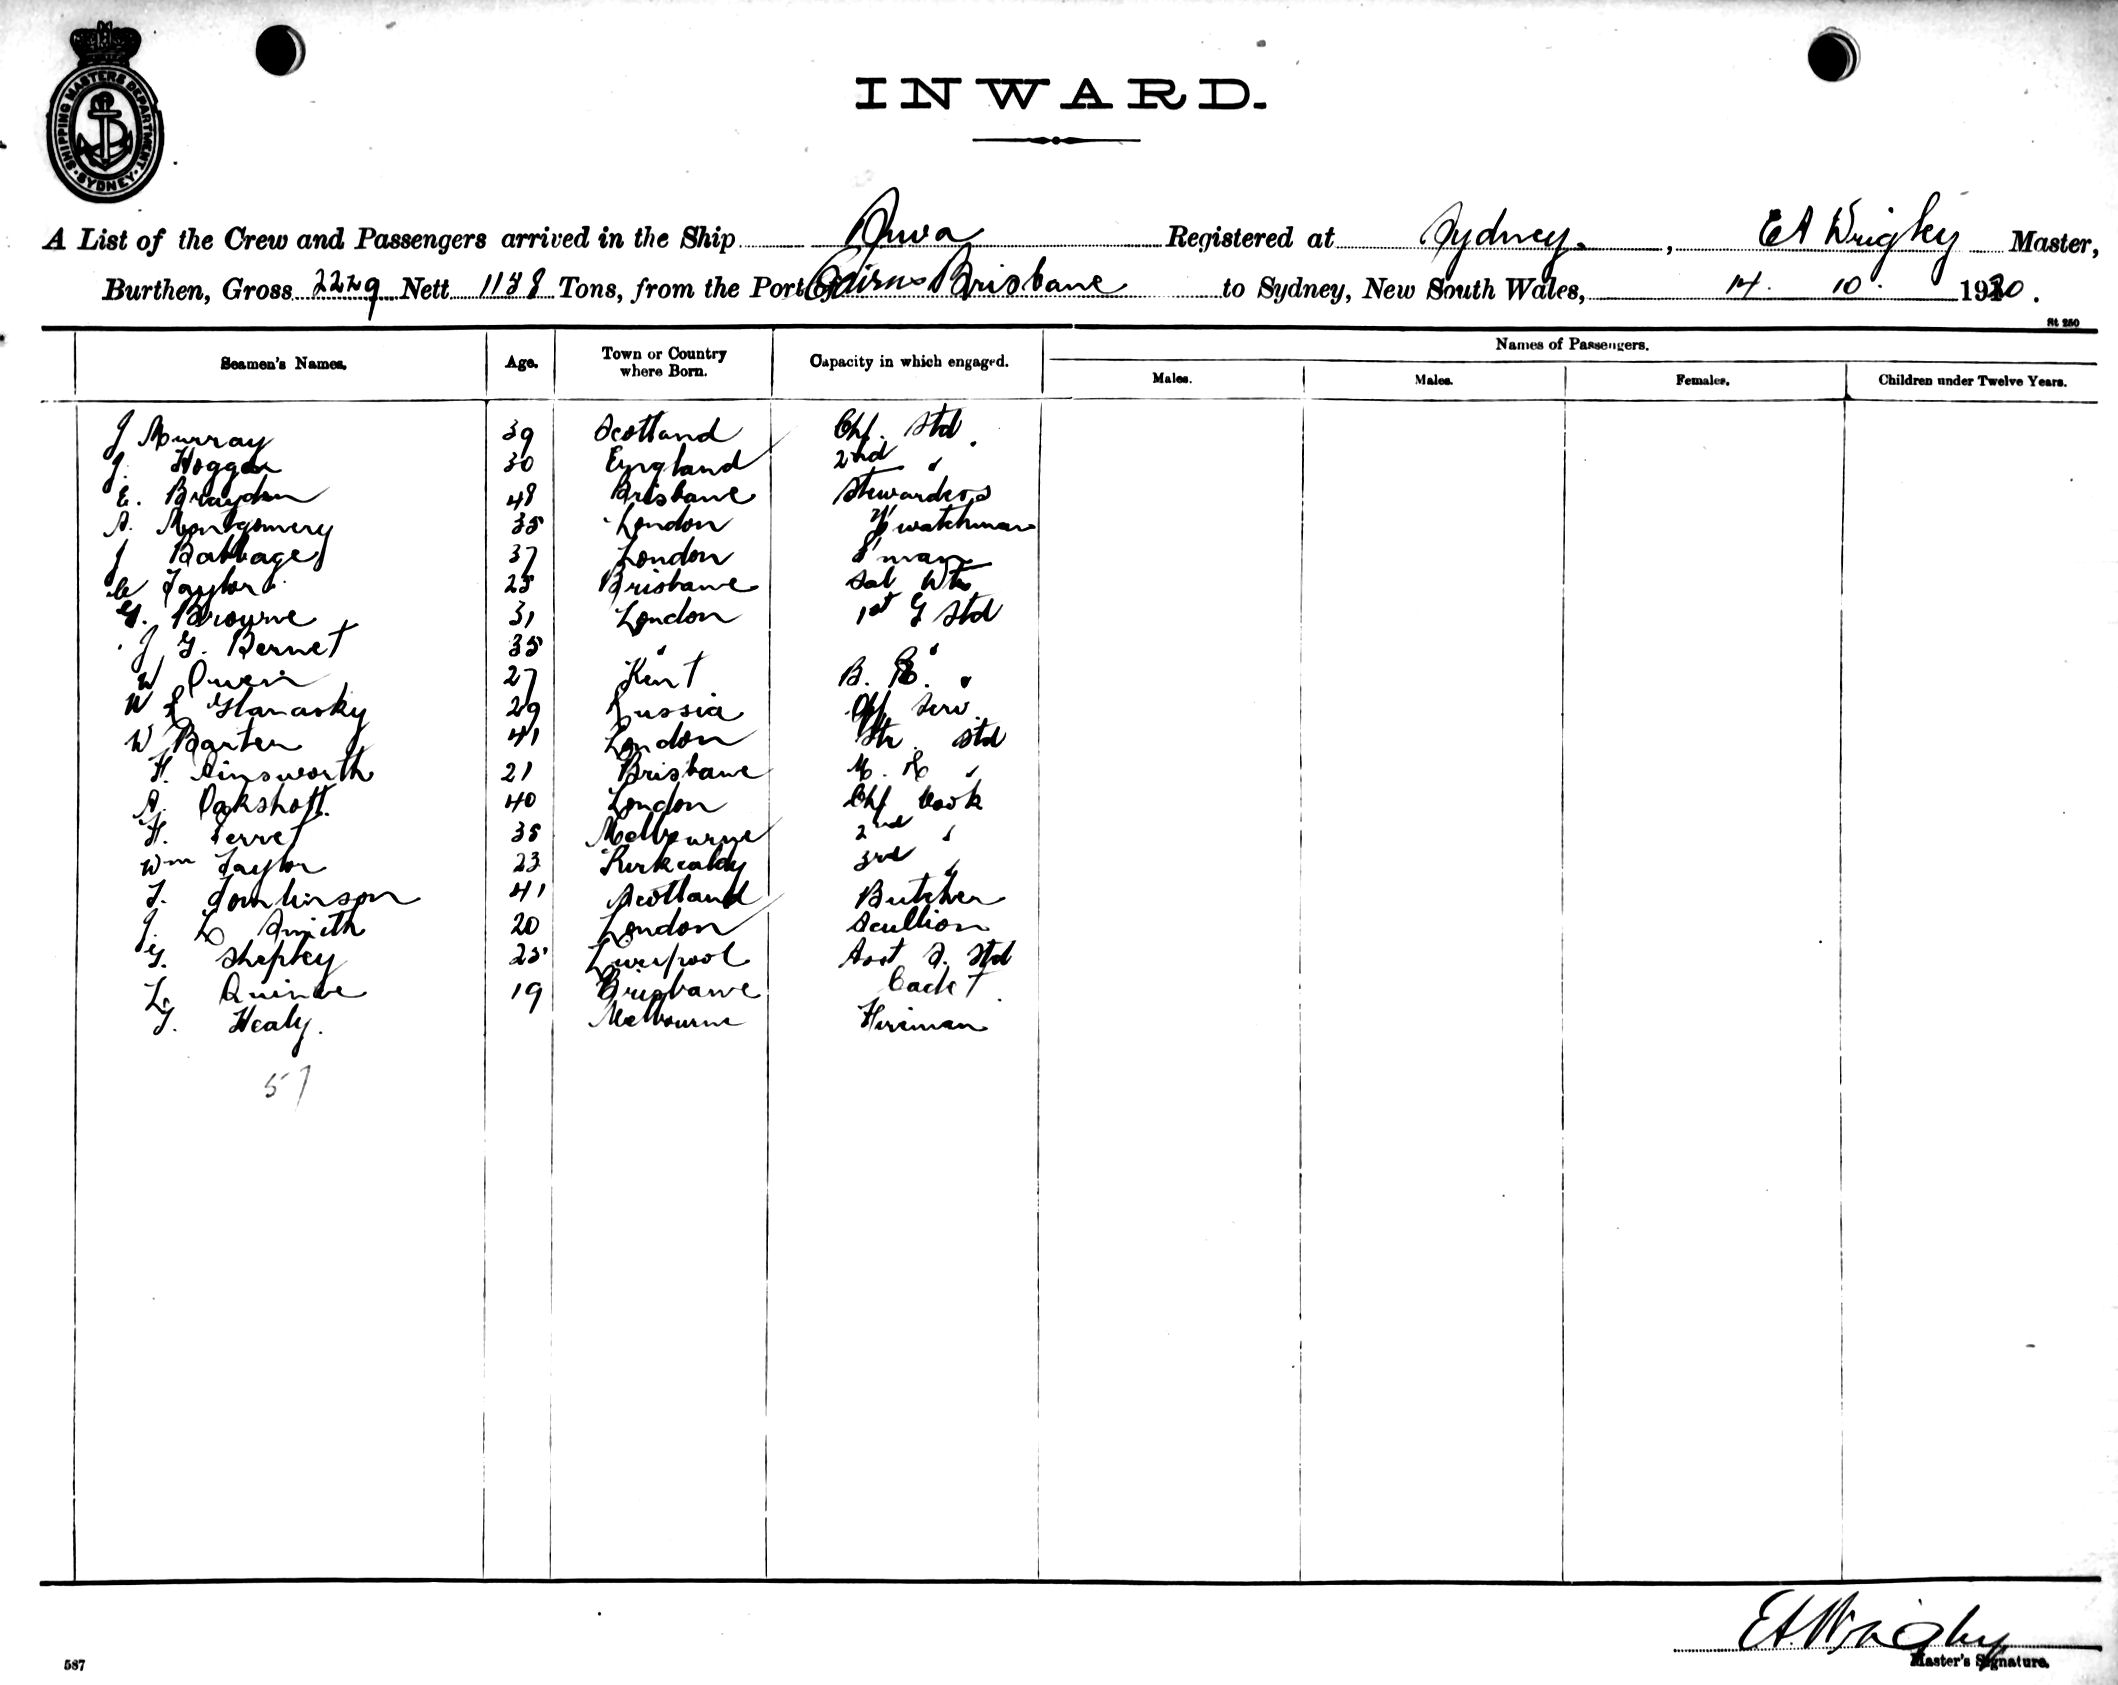 SHIPPING MASTERS DEPARTMENT
SYDNEY
INWARD.
A List of the Crew and Passengers arrived in the Ship Suva Registered at Sydney. , E A Wrigley Master,
Burthen, Gross 2229 Nett 1138 Tons, from the Port of Cairns Brisbane to Sydney, New South Wales, 14. 10. 1920.
St 250
Seamen's Names. Age. Town or Country where Born. Capacity in which engaged. Names of Passengers.
Males. Males. Females. Children under Twelve Years.
J Murray 39 Scotland Chf. Std
J. Hogger 30 England 2nd "
E. Braydon 48 Brisbane Stewardess
A. Montgomery 35 London watchman
J Babbage 37 London man
C Taylor 25 Brisbane Sal Wtr
G. Browne 31 London 1st G Std
J G. Bernet 35 " "
W Owen 27 Kent B. R. "
W Glanasky 29 Russia Off Serv.
W Barten 41 London Str. Std
H. Ainsworth 21 Brisbane M. R "
A. Oakshott. 40 London Chf Cook
H. Ferret 35 Melbourne 2nd "
Wm Taylor 23 Kirkcaldy 3rd "
T. Tomlinson 41 Scotland Butcher
J. L Smith 20 London Scullion
G. Shepley 25 Liverpool Asst S. Std
L. Quince 19 Brisbane Cadet
T. Healy. Melbourne Fireman
57
E A Wrigley
Master's Signature.
587